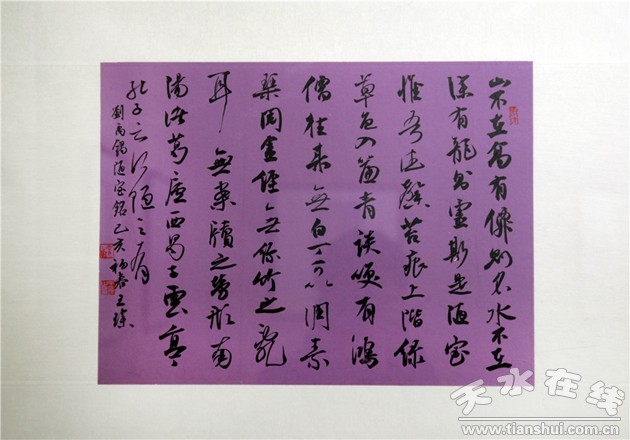 山不在高有僊則名水不在
深有龍則靈斯是陋室
惟吾德馨苔痕上階綠
草色入簾青談唉有鴻
儒往來無白丁可以調素
琴閱金經無絲竹之亂
耳無案牘之勞形南
陽諸葛廬西蜀子雲亭
孔子云何陋之有
劉禹錫陋室銘己亥初春王
天水在线
www.tianshui.com.cn